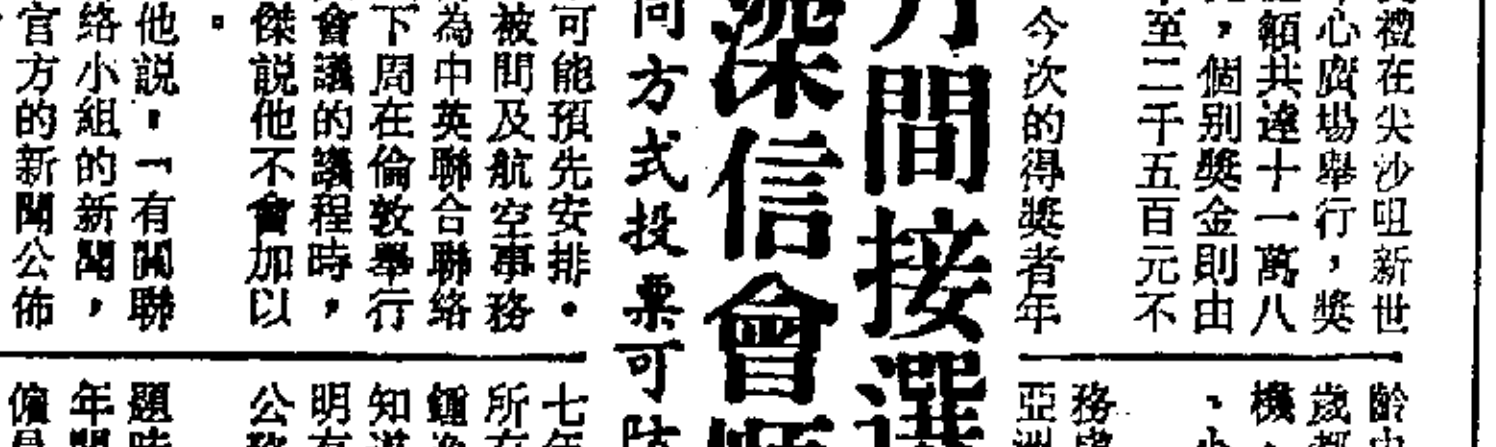 禮在尖沙咀新世
心廣場舉行，獎
額共達十一萬八
，個別獎金則由
至二千五百元不
今次的得獎者年
間接選
深信會
同方式投票可
可能預先安排。
被問及航空事務
為中英聯合聯絡
下周在倫敦舉行
會議的議程時，
傑説他不會加以
。
他説，「有關聯
絡小組的新聞，
官方的新聞公佈
齡
歲
機
務
亞洲
七年
所
知道
明有
公務
題時
年